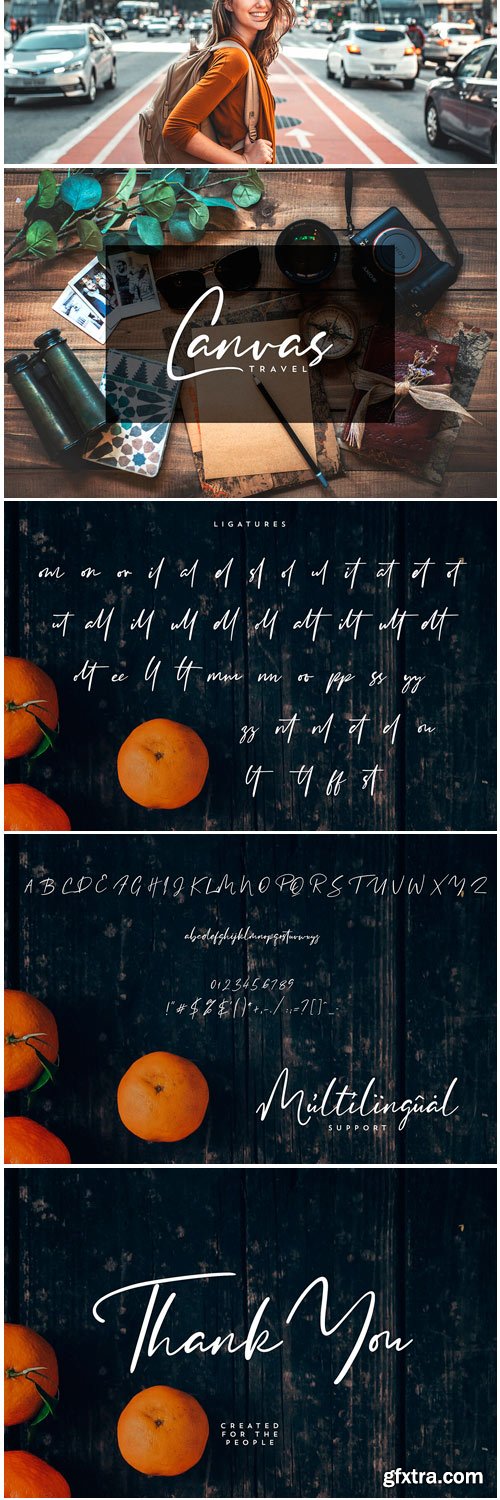 Canvas
TRAVEL
LIGATURES
om on or il al el sl ol ul it at et ot
ut all ill ull dll oll alt ilt ult dlt
dt ee ll tt mm nn oo pp ss yy
zz nt nl ct cl ou
lt tl ff st
A B C D E F G H I J K L M N O P Q R S T U V W X Y Z
abcdefghijklmnopqrstuvwxyz
0123456789
Múltilïngûàl
SUPPORT
Thank You
CREATED
FOR THE
PEOPLE
gfxtra.com